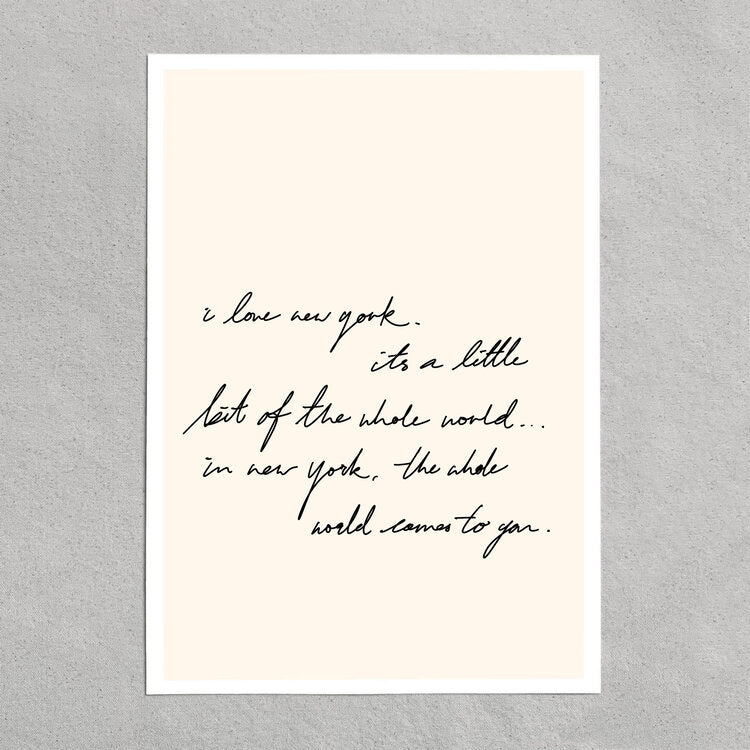 i love new york.
its a little
bit of the whole world...
in new york, the whole
world comes to you.